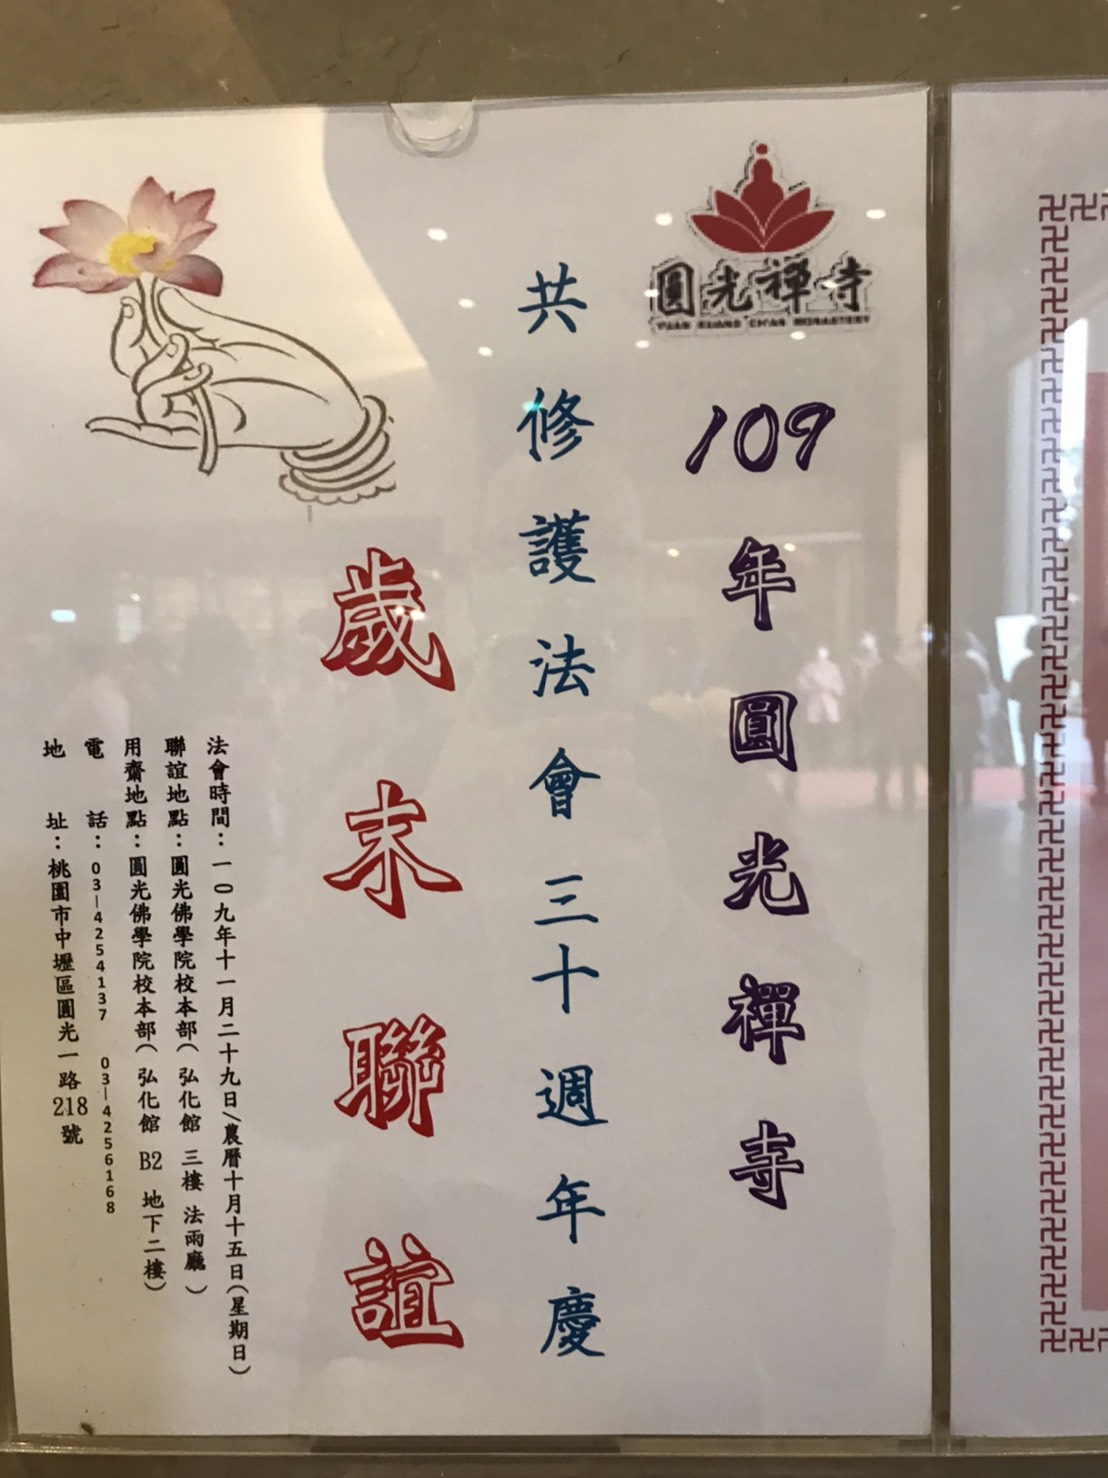 圓光禪寺
YUAN KUANG CH'AN MONASTERY
109年圓光禪寺
共修護法會三十週年慶
歲末聯誼
法會時間：一０九年十一月二十九日/農曆十月十五日(星期日)
聯誼地點：圓光佛學院校本部(弘化館 三樓 法雨廳)
用齋地點：圓光佛學院校本部(弘化館 B2 地下二樓)
電話：03-4254137 03-4256168
地址：桃園市中壢區圓光一路218號